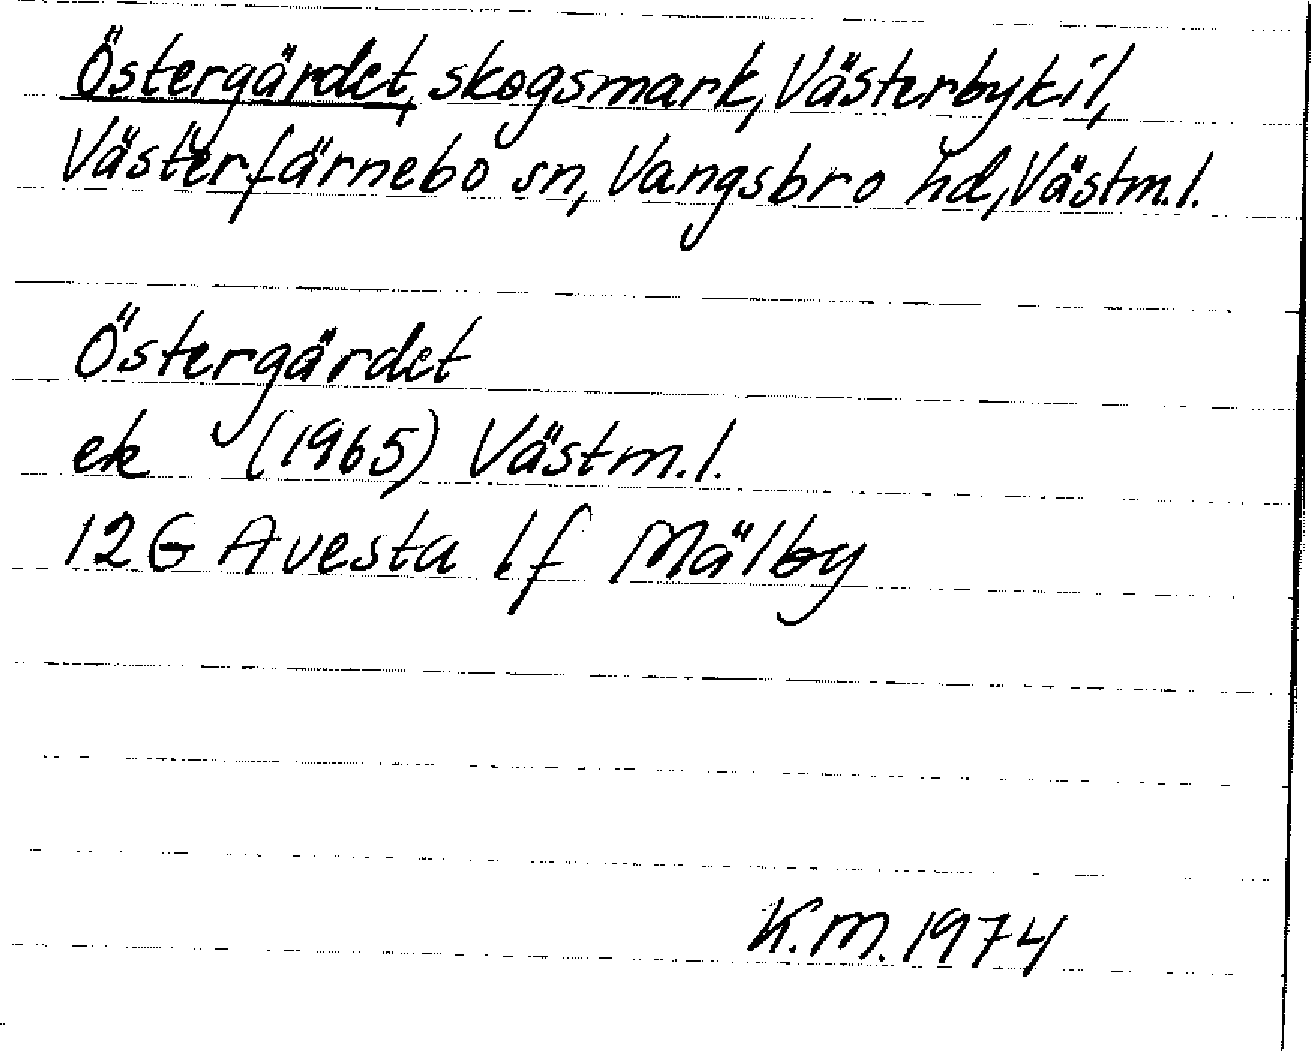 Östergärdet, skogsmark, Västerbykil,
Västerfärnebo sn, Vangsbro hd, Västm.l.
Östergärdet
ek (1965) Västm.l.
12G Avesta 1f Mälby
K.M. 1974